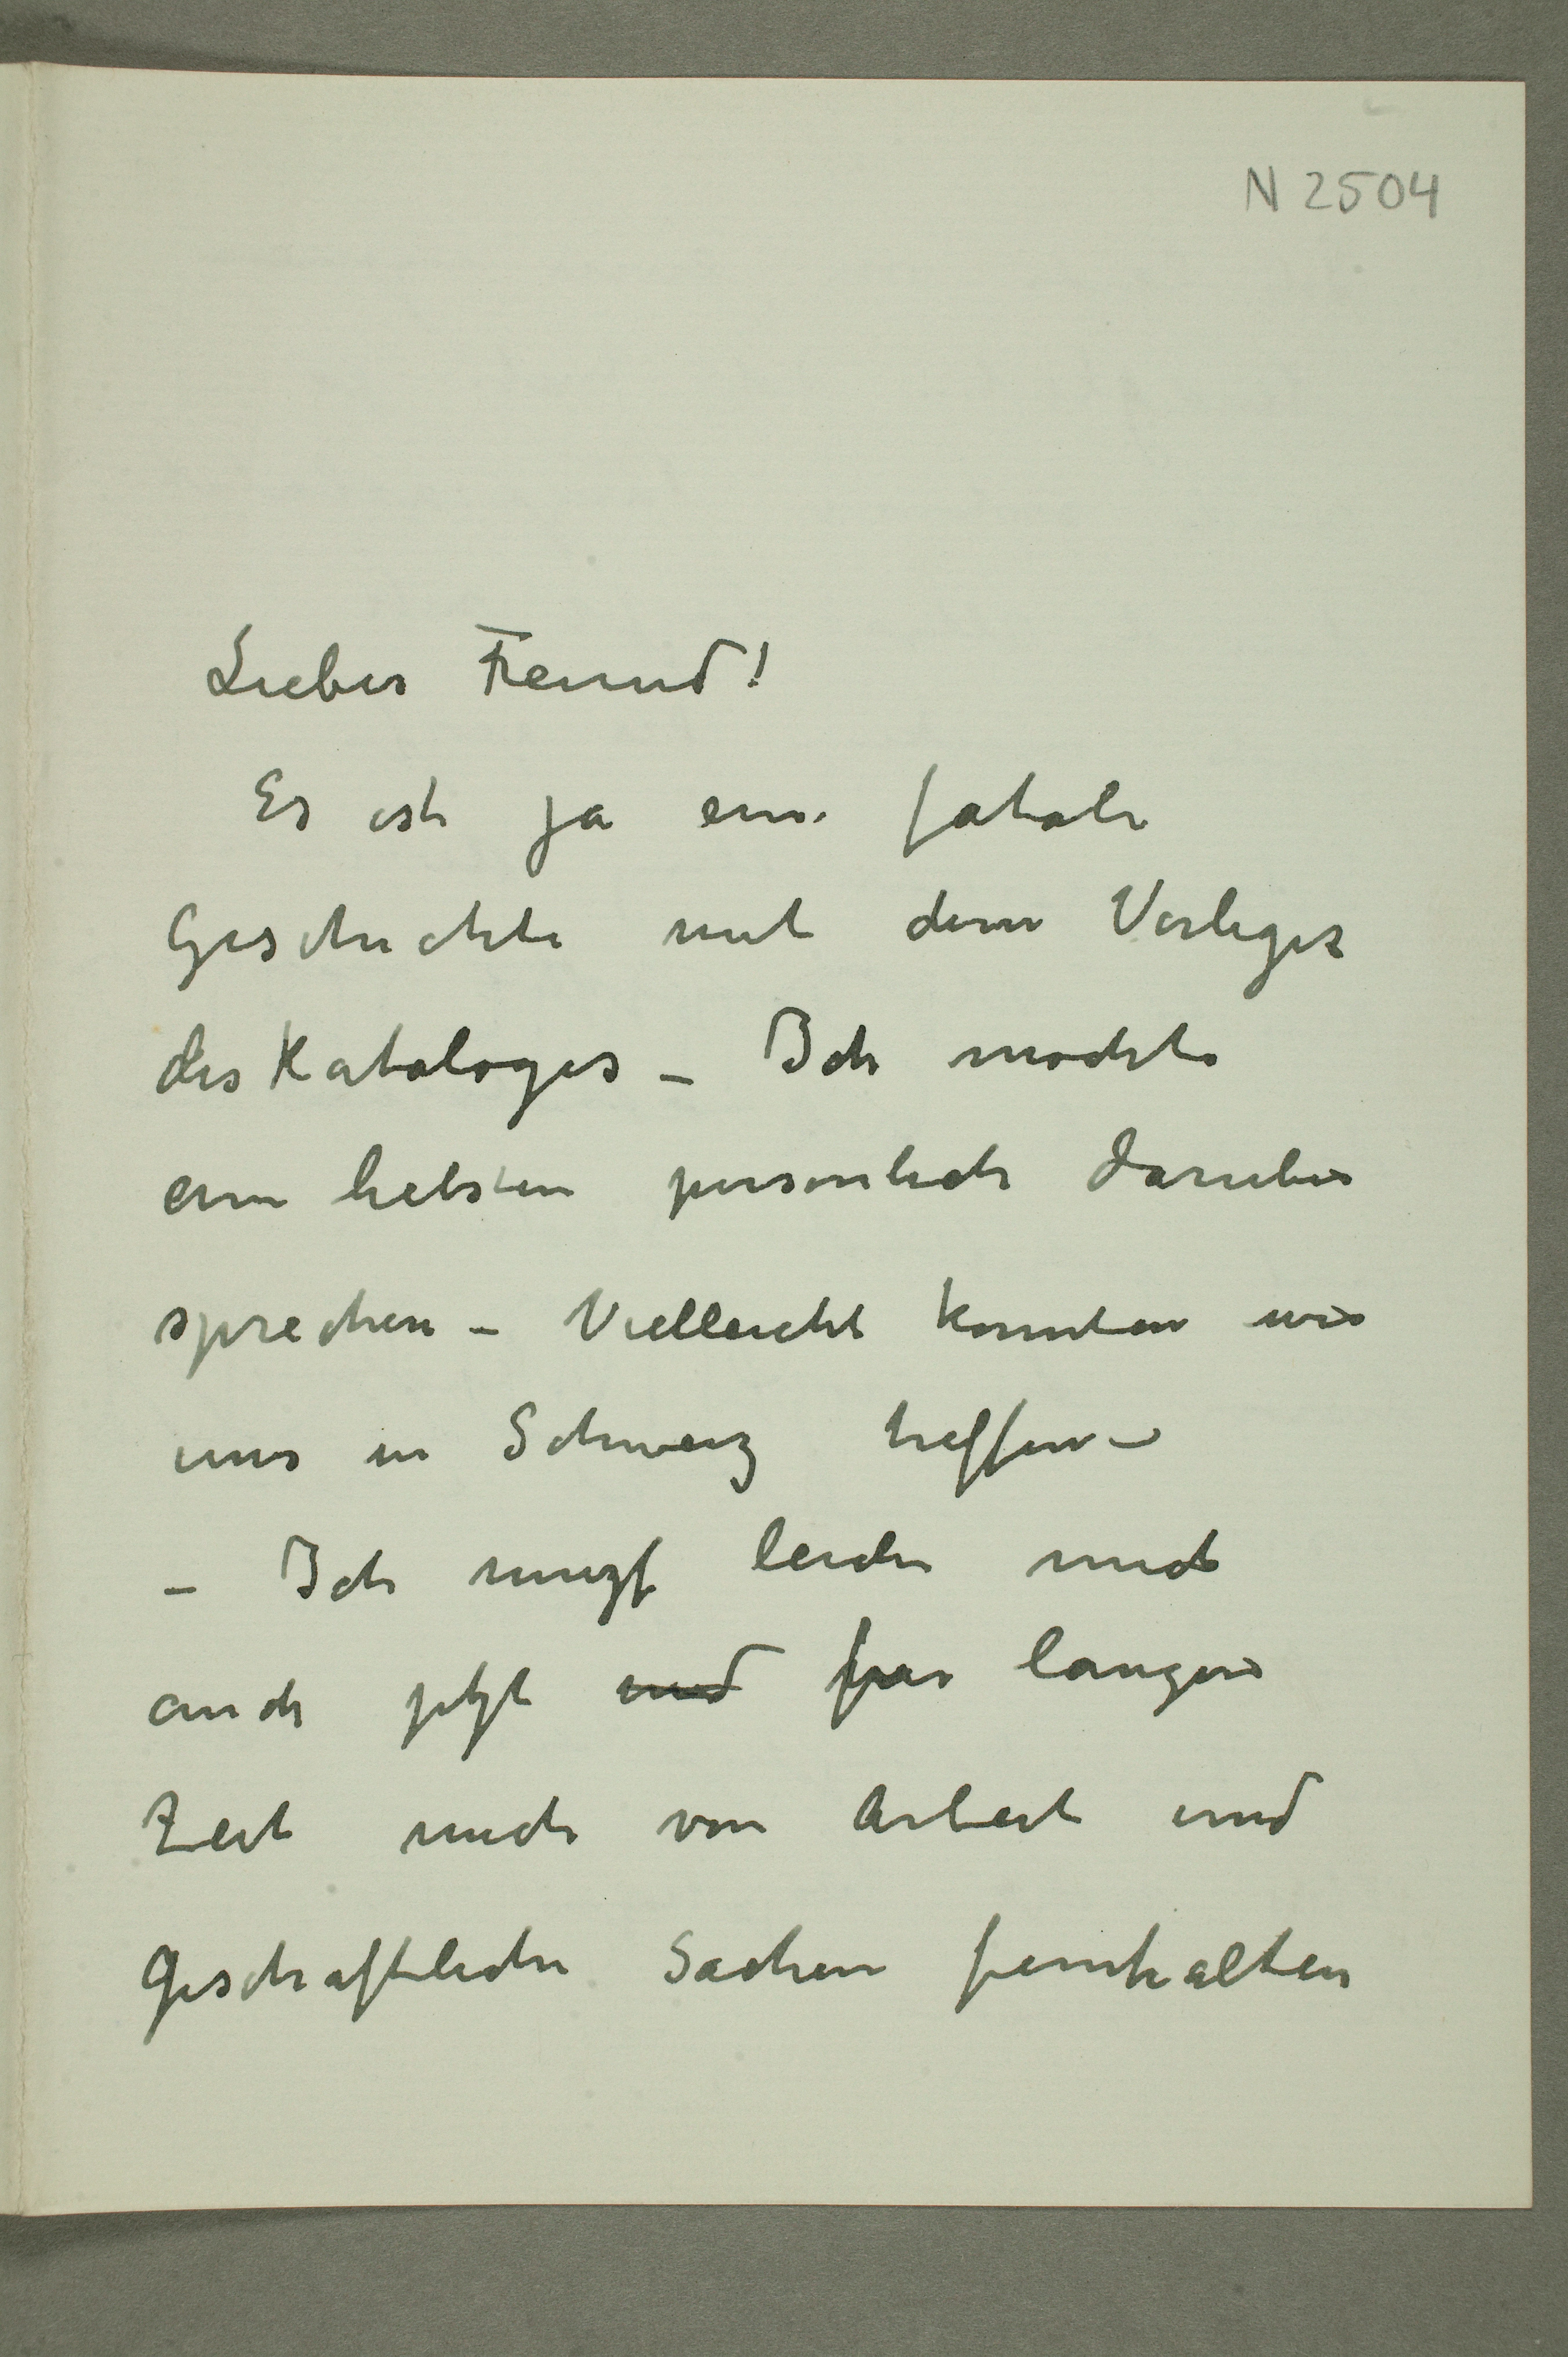 N 2504
Lieber Freund!
Es ist ja eine fatale
Geschichte mit dem Verleger
des Kataloges – Ich mochte
am liebsten personlich daruber
sprechen – Vielleicht konnten wir
uns in Schweiz treffen –
– Ich muszt leider mich
auch jetzt und fur langere
Zeit mich von Arbeit und
geschaftliche Sachen fernhalten